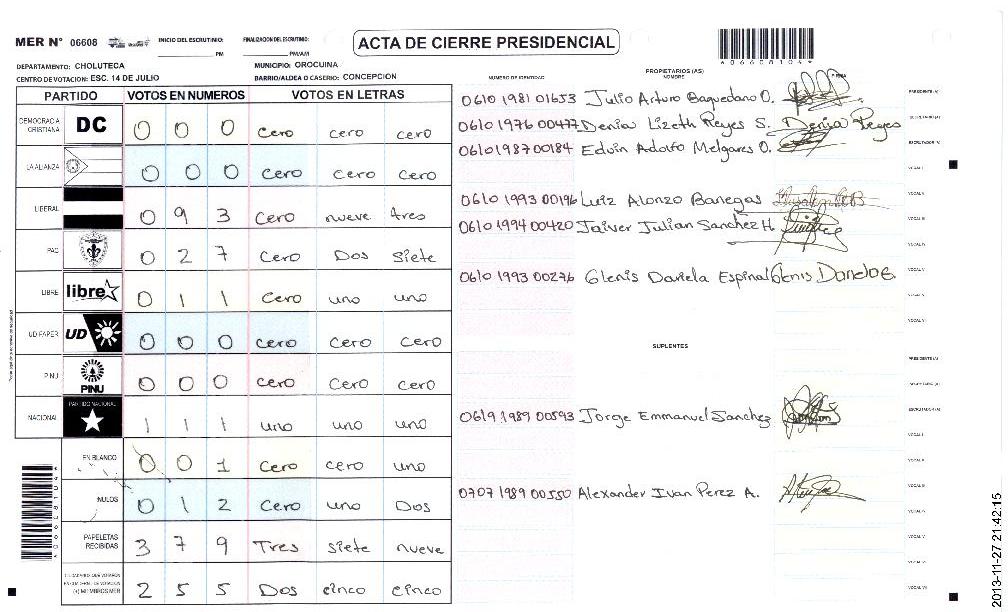 MER N° 06608 INICIO DEL ESCRUTINIO: PM FINALIZACION DEL ESCRUTINIO: PM/AM ACTA DE CIERRE PRESIDENCIAL
DEPARTAMENTO: CHOLUTECA MUNICIPIO: OROCUINA
CENTRO DE VOTACION: ESC. 14 DE JULIO BARRIO/ALDEA O CASERIO: CONCEPCION
PARTIDO VOTOS EN NUMEROS VOTOS EN LETRAS
DEMOCRACIA CRISTIANA DC 0 0 0 cero cero cero
LA ALIANZA 0 0 0 cero cero cero
LIBERAL 0 9 3 cero nueve tres
PAC 0 2 7 cero Dos siete
LIBRE libre 0 1 1 cero uno uno
UD FAPER UD 0 0 0 cero cero cero
PINU PINU 0 0 0 cero cero cero
NACIONAL PARTIDO NACIONAL 1 1 1 uno uno uno
EN BLANCO 0 0 1 cero cero uno
NULOS 0 1 2 cero uno Dos
PAPELETAS RECIBIDAS 3 7 9 Tres siete nueve
2 5 5 Dos cinco cinco
NUMERO DE IDENTIDAD PROPIETARIOS (AS) NOMBRE FIRMA
0610 1981 01653 Julio Arturo Baquedano O. PRESIDENTE (A)
0610 1976 00477 Denia Lizeth Reyes S. Denia Reyes SECRETARIO (A)
0610 1987 00184 Edvin Adolfo Melgares O. ESCRUTADOR (A)
VOCAL I
0610 1993 00196 Luiz Alonzo Banegas VOCAL II
0610 1994 00420 Jaiver Julian Sanchez H. VOCAL III
VOCAL IV
0610 1993 00276 Glenis Daniela Espinal VOCAL V
VOCAL VI
VOCAL VII
SUPLENTES
PRESIDENTE (A)
SECRETARIO (A)
0619 1989 00593 Jorge Emmanuel Sanchez ESCRUTADOR (A)
VOCAL I
VOCAL II
0707 1989 00550 Alexander Ivan Perez A. VOCAL III
VOCAL IV
VOCAL V
VOCAL VI
VOCAL VII
2013-11-27 21:42:15